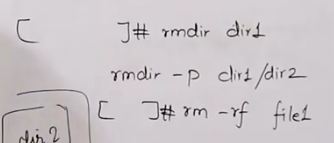 [ ]# rmdir dir1
rmdir -p dir1/dir2
[ ]# rm -rf file1
dir2